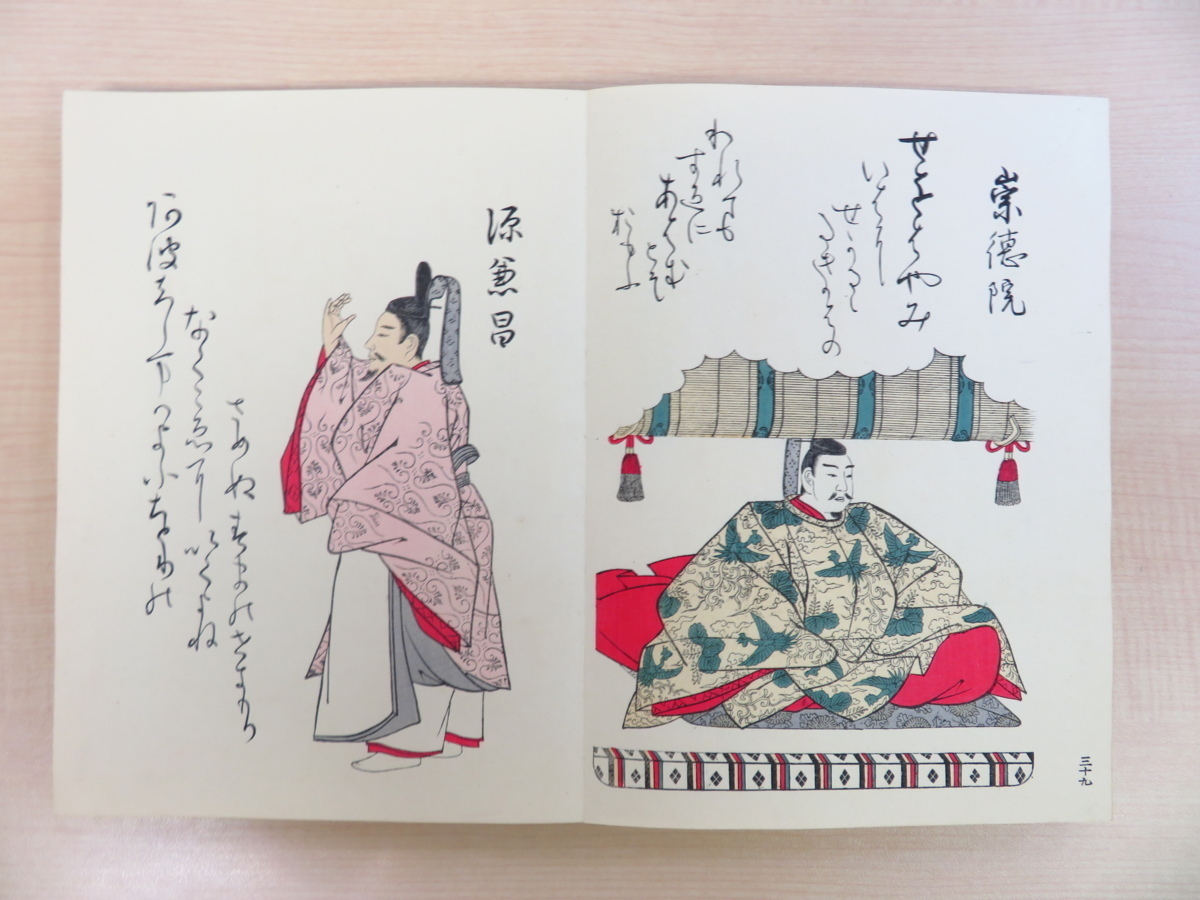 崇徳院
せをはやみ
いはに
せかるゝ
たきかはの
われても
すゑに
あはむ
とそ
おもふ
三十九
源兼昌
阿波ちしまかよふちとりの
なくこゑにいくよね
さめぬすまのせきもり